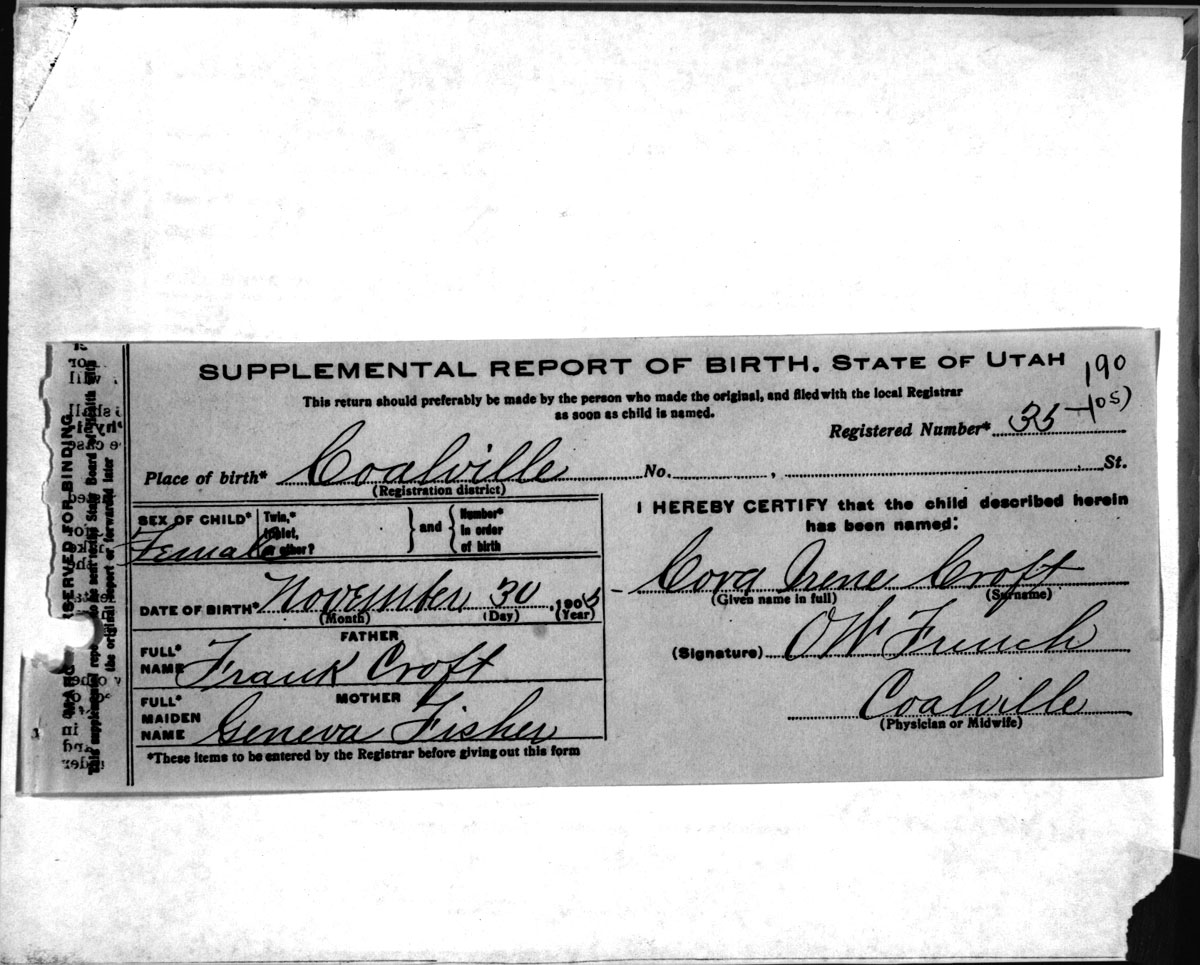 SUPPLEMENTAL REPORT OF BIRTH. STATE OF UTAH
190
This return should preferably be made by the person who made the original, and filed with the local Registrar
as soon as child is named.
Registered Number* 35 - (05)
Place of birth* Coalville No. , St.
(Registration district)
SEX OF CHILD* Female
Twin,* triplet, or other?
and
Number* in order of birth
DATE OF BIRTH* November 30, 1905
(Month) (Day) (Year)
FATHER
FULL* NAME Frank Croft
MOTHER
FULL* MAIDEN NAME Geneva Fisher
*These items to be entered by the Registrar before giving out this form
I HEREBY CERTIFY that the child described herein
has been named:
Cora Irene Croft
(Given name in full) (Surname)
(Signature) O W French
Coalville
(Physician or Midwife)
RESERVED FOR BINDING
This supplemental report to be sent to the State Board of Health
the original report or forwarded later